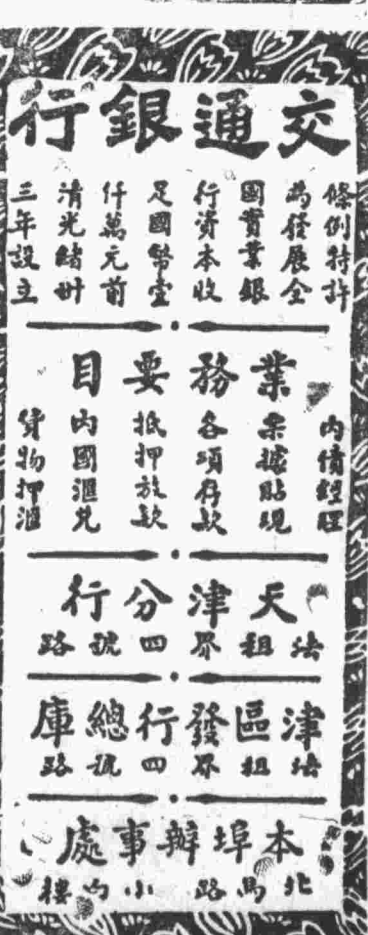 交通銀行
條例特許
為發展全
國實業銀
行資本收
足國幣壹
仟萬元前
清光緒卅
三年設立
業務要目
內債經理
票據貼現
各項存款
抵押放款
內國滙兌
貨物押滙
天津分行
法租界四號路
津區發行總庫
法租界四號路
本埠辦事處
北馬路 小內樓